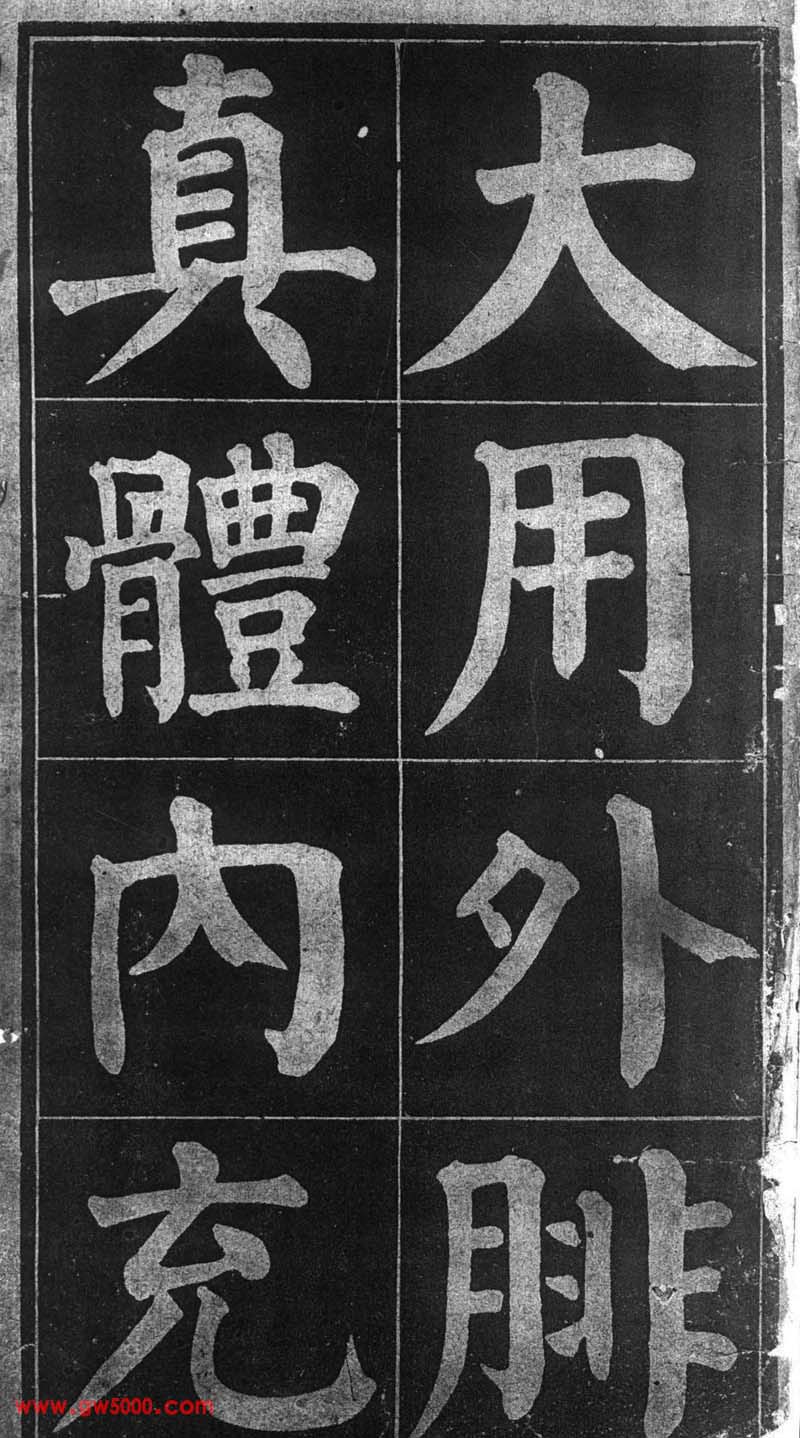 大用外腓
真體內充
www.gw5000.com